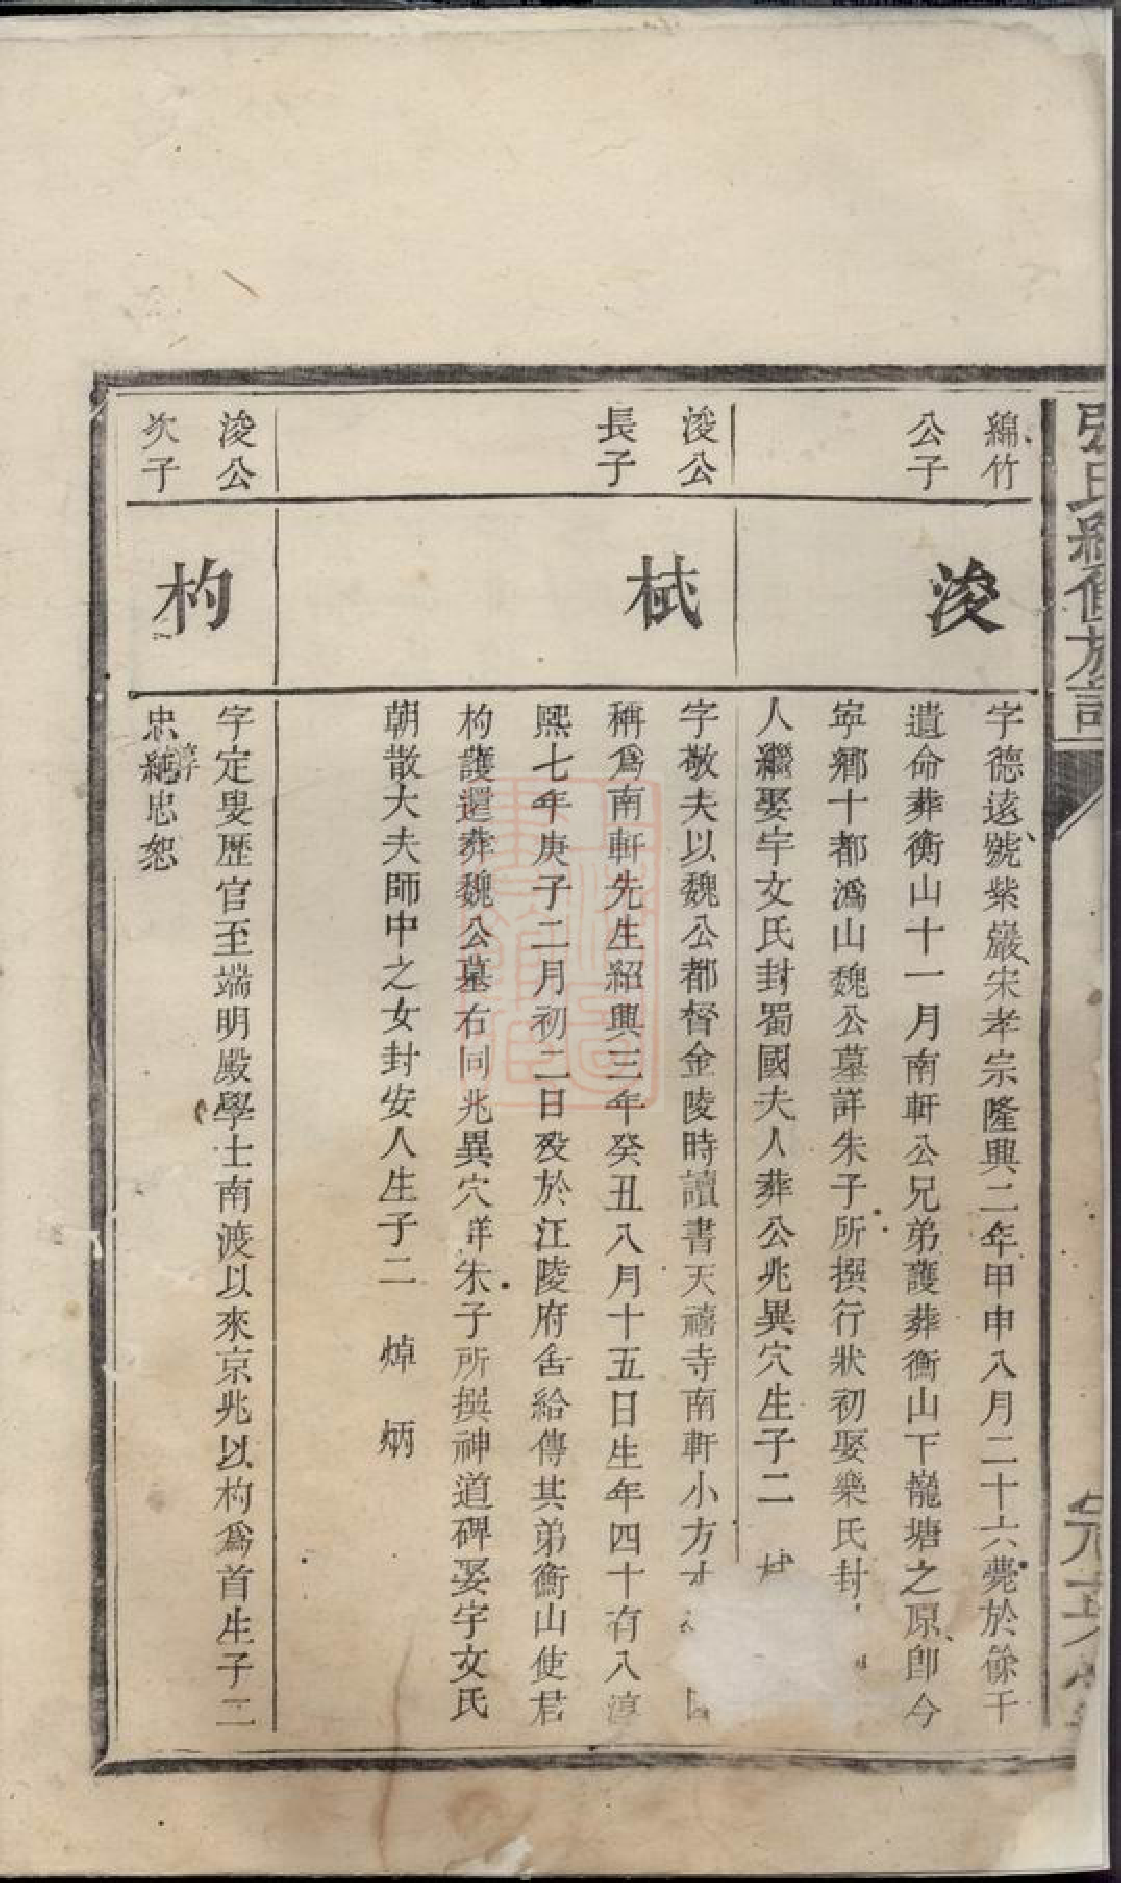 張氏續修族譜
綿竹
公子
浚
字德逺號紫巖宋孝宗隆興二年甲申八月二十六薨於餘干
遺命葬衡山十一月南軒公兄弟護葬衡山下龍塘之原卽今
寧鄉十都溈山魏公墓詳朱子所撰行狀初娶樂氏封
人繼娶宇文氏封蜀國夫人葬公兆異穴生子二
浚公
長子
栻
字敬夫以魏公都督金陵時讀書天禧寺南軒小方
稱爲南軒先生紹興三年癸丑八月十五日生年四十有八淳
熙七年庚子二月初二日歿於江陵府舍給傳其弟衡山使君
杓護還葬魏公墓右同兆異穴詳朱子所撰神道碑娶宇文氏
朝散大夫師中之女封安人生子二 焯 炳
浚公
次子
杓
字定叟歷官至端明殿學士南渡以來京兆以杓爲首生子二
忠純忠恕